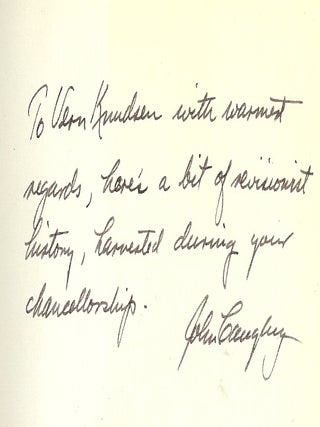 To Vern Knudsen with warmest
regards, here's a bit of revisionist
history, harvested during your
chancellorship.
John Caughey